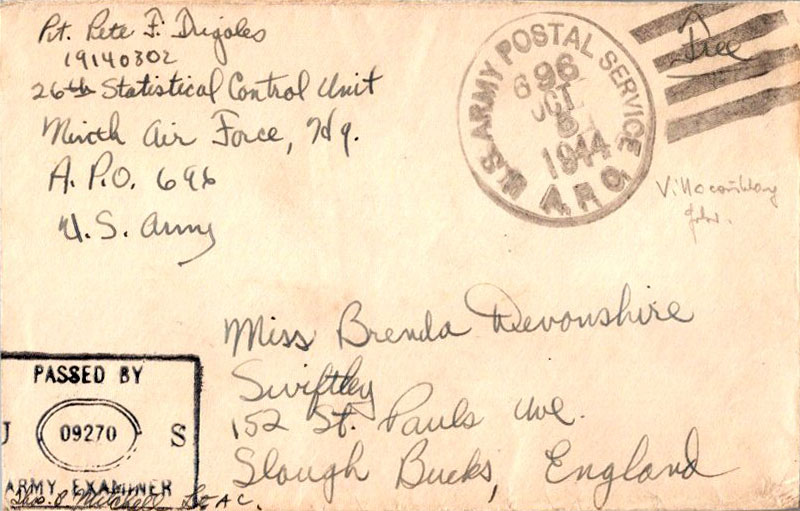 Pvt. Pete F. Drigoles
19140302
26th Statistical Control Unit
Ninth Air Force, Hq.
A.P.O. 696
U.S. Army
U.S. ARMY POSTAL SERVICE
696
OCT
5
1944
A.P.O.
Free
Miss Brenda Devonshire
Swiftley
152 St. Pauls Ave.
Slough Bucks, England
PASSED BY
U 09270 S
ARMY EXAMINER
Mitchell